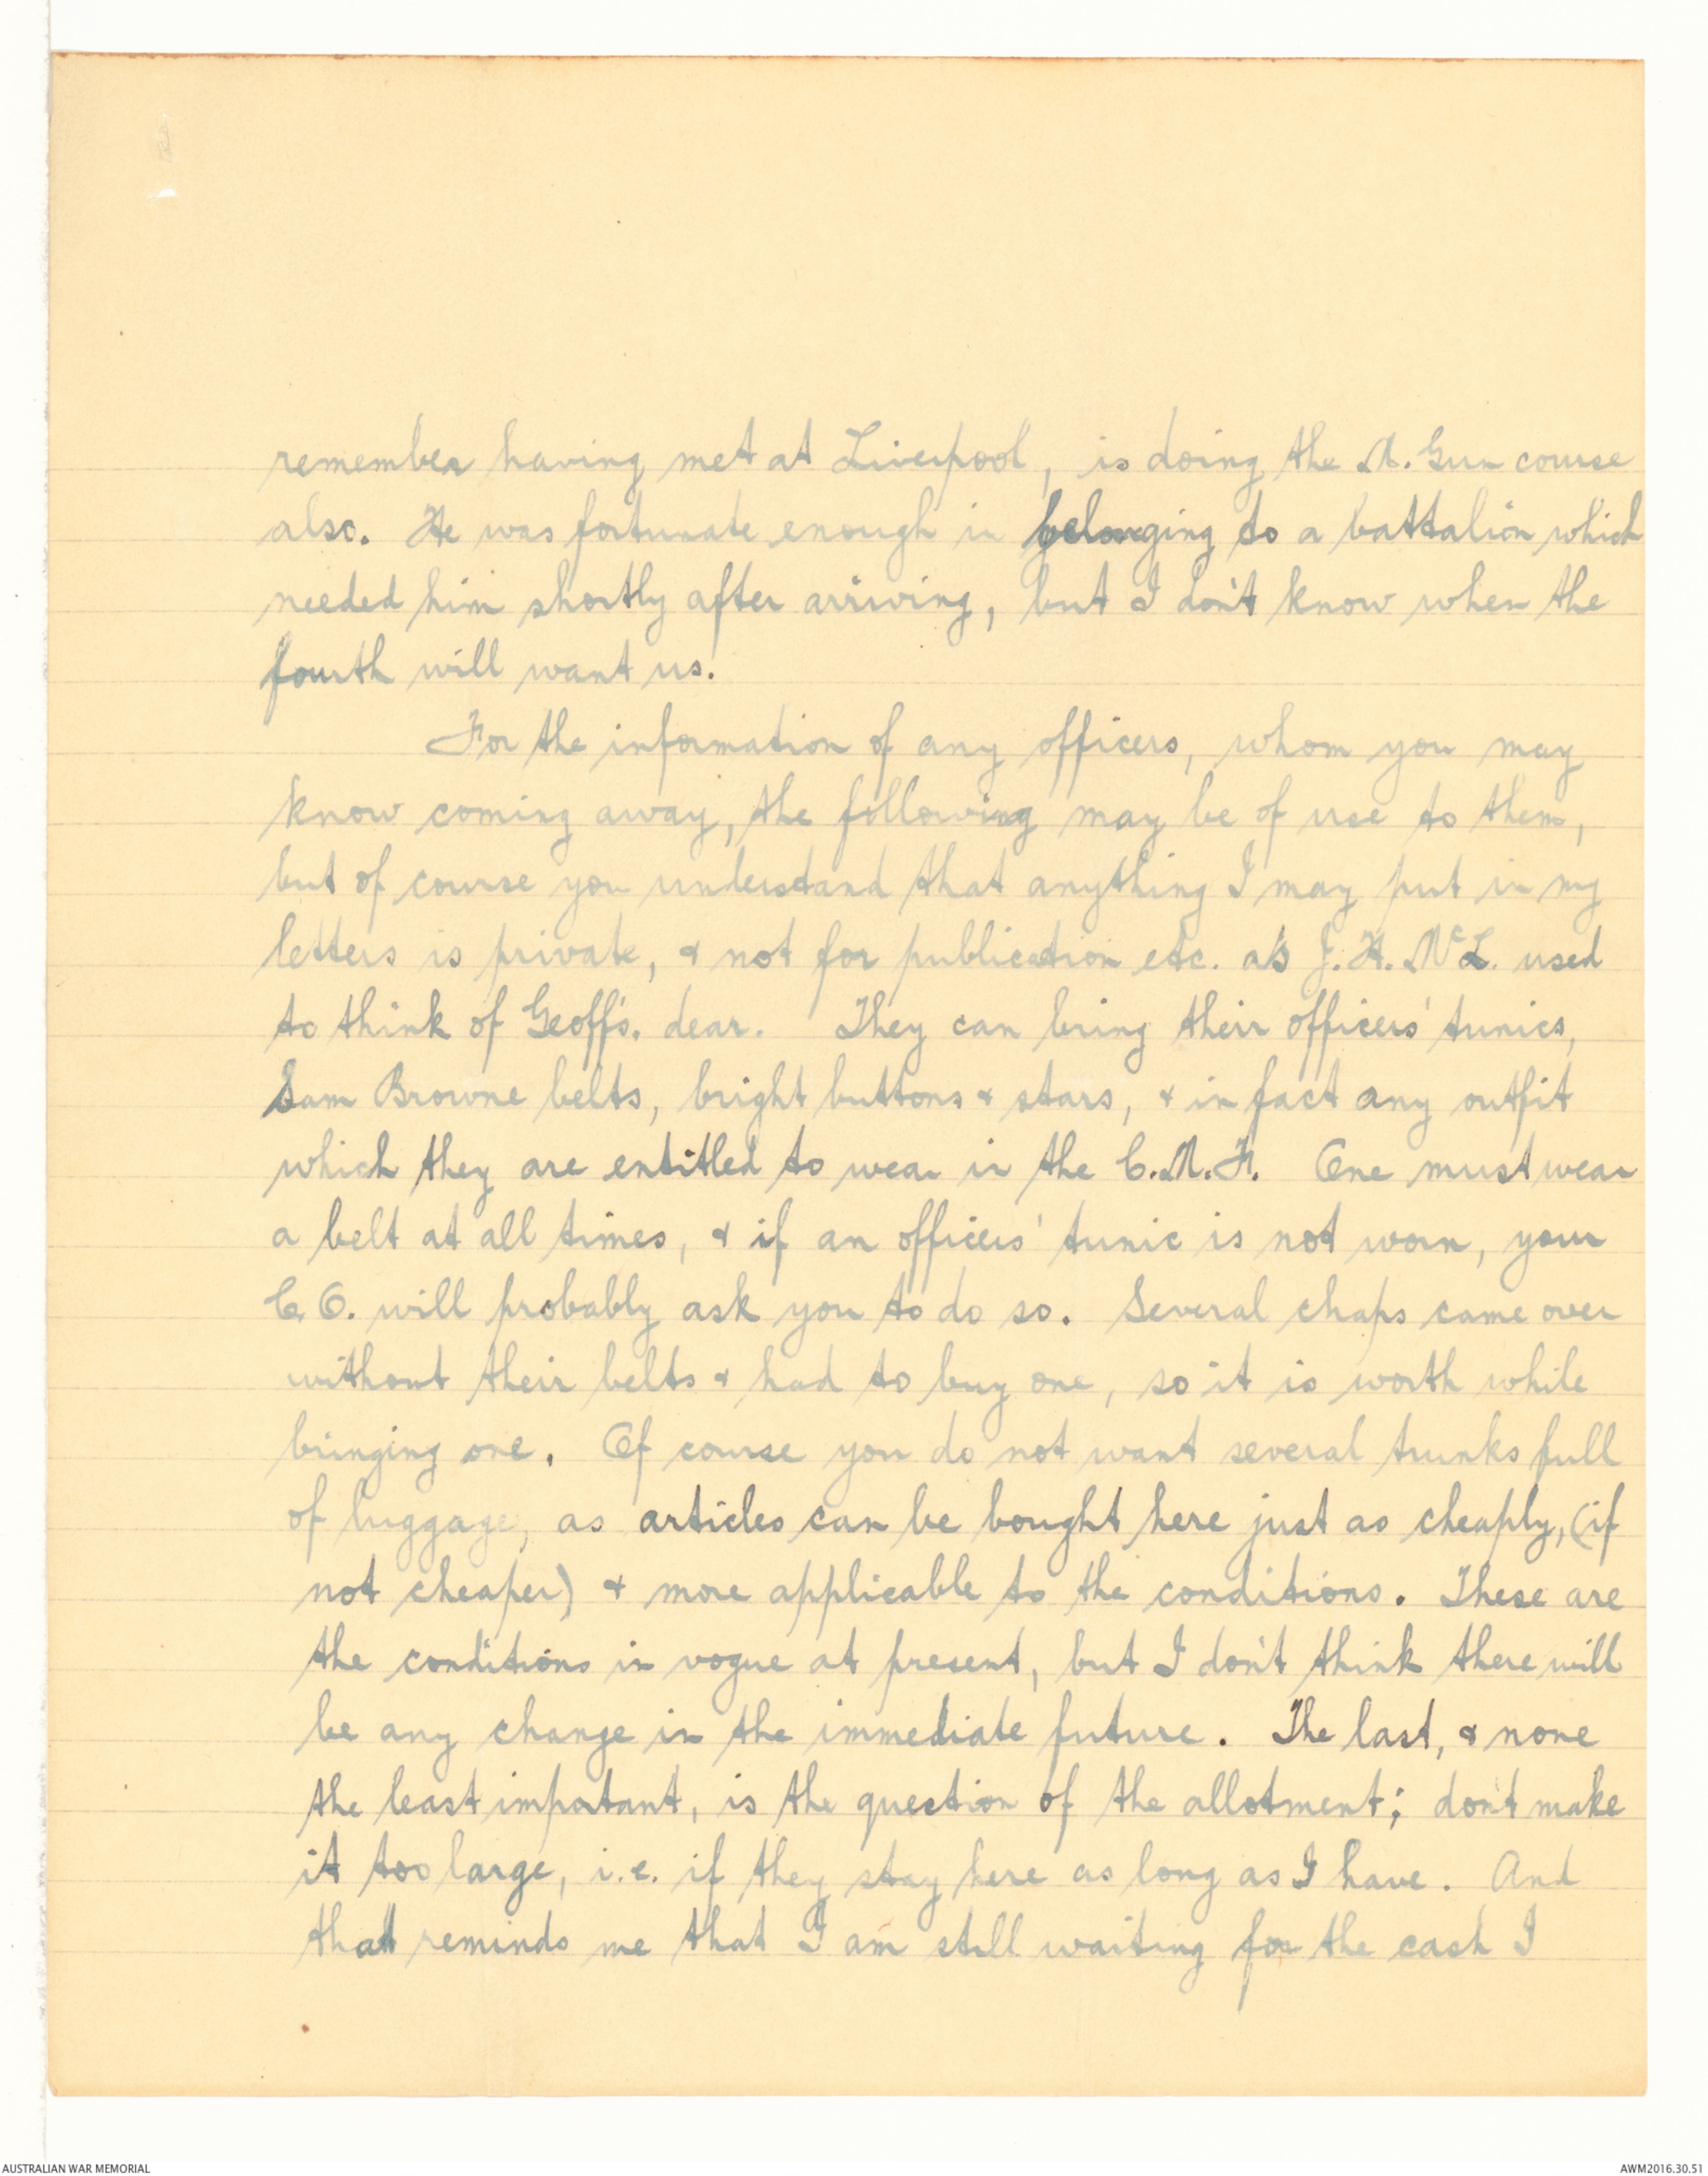 remember having met at Liverpool, is doing the M. Gun course
also. He was fortunate enough in belonging to a battalion which
needed him shortly after arriving, but I don't know when the
fourth will want us.
For the information of any officers, whom you may
know coming away, the following may be of use to them,
but of course you understand that anything I may put in my
letters is private, & not for publication etc. as J. H. McL. used
to think of Geoff's. dear. They can bring their officers' tunics,
Sam Browne belts, bright buttons & stars, & in fact any outfit
which they are entitled to wear in the C.M.F. One must wear
a belt at all times, & if an officers' tunic is not worn, your
C.O. will probably ask you to do so. Several chaps came over
without their belts & had to buy one, so it is worth while
bringing one. Of course you do not want several trunks full
of luggage, as articles can be bought here just as cheaply, (if
not cheaper) & more applicable to the conditions. These are
the conditions in vogue at present, but I don't think there will
be any change in the immediate future. The last, & none
the least important, is the question of the allotment; don't make
it too large, i.e. if they stay here as long as I have. And
that reminds me that I am still waiting for the cash I
AUSTRALIAN WAR MEMORIAL
AWM2016.30.51